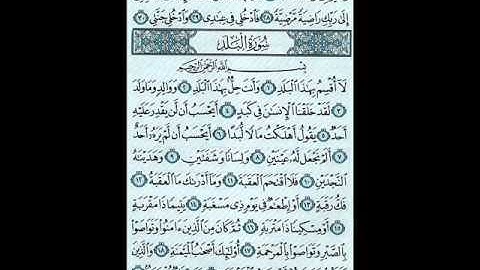 إِلَىٰ رَبِّكِ رَاضِيَةً مَّرْضِيَّةً ٢٨ فَٱدْخُلِى فِى عِبَٰدِى ٢٩ وَٱدْخُلِى جَنَّتِى ٣٠
سُورَةُ الْبَلَدِ
بِسْمِ ٱللَّهِ ٱلرَّحْمَٰنِ ٱلرَّحِيمِ
لَآ أُقْسِمُ بِهَٰذَا ٱلْبَلَدِ ١ وَأَنتَ حِلٌّۢ بِهَٰذَا ٱلْبَلَدِ ٢ وَوَالِدٍ وَمَا وَلَدَ
٣ لَقَدْ خَلَقْنَا ٱلْإِنسَٰنَ فِى كَبَدٍ ٤ أَيَحْسَبُ أَن لَّن يَقْدِرَ عَلَيْهِ
أَحَدٌ ٥ يَقُولُ أَهْلَكْتُ مَالًا لُّبَدًا ٦ أَيَحْسَبُ أَن لَّمْ يَرَهُۥٓ أَحَدٌ
٧ أَلَمْ نَجْعَل لَّهُۥ عَيْنَيْنِ ٨ وَلِسَانًا وَشَفَتَيْنِ ٩ وَهَدَيْنَٰهُ
ٱلنَّجْدَيْنِ ١٠ فَلَا ٱقْتَحَمَ ٱلْعَقَبَةَ ١١ وَمَآ أَدْرَىٰكَ مَا ٱلْعَقَبَةُ ١٢
فَكُّ رَقَبَةٍ ١٣ أَوْ إِطْعَٰمٌ فِى يَوْمٍ ذِى مَسْغَبَةٍ ١٤ يَتِيمًا ذَا مَقْرَبَةٍ
١٥ أَوْ مِسْكِينًا ذَا مَتْرَبَةٍ ١٦ ثُمَّ كَانَ مِنَ ٱلَّذِينَ ءَامَنُوا۟ وَتَوَاصَوْا۟
بِٱلصَّبْرِ وَتَوَاصَوْا۟ بِٱلْمَرْحَمَةِ ١٧ أُو۟لَٰٓئِكَ أَصْحَٰبُ ٱلْمَيْمَنَةِ ١٨ وَٱلَّذِينَ